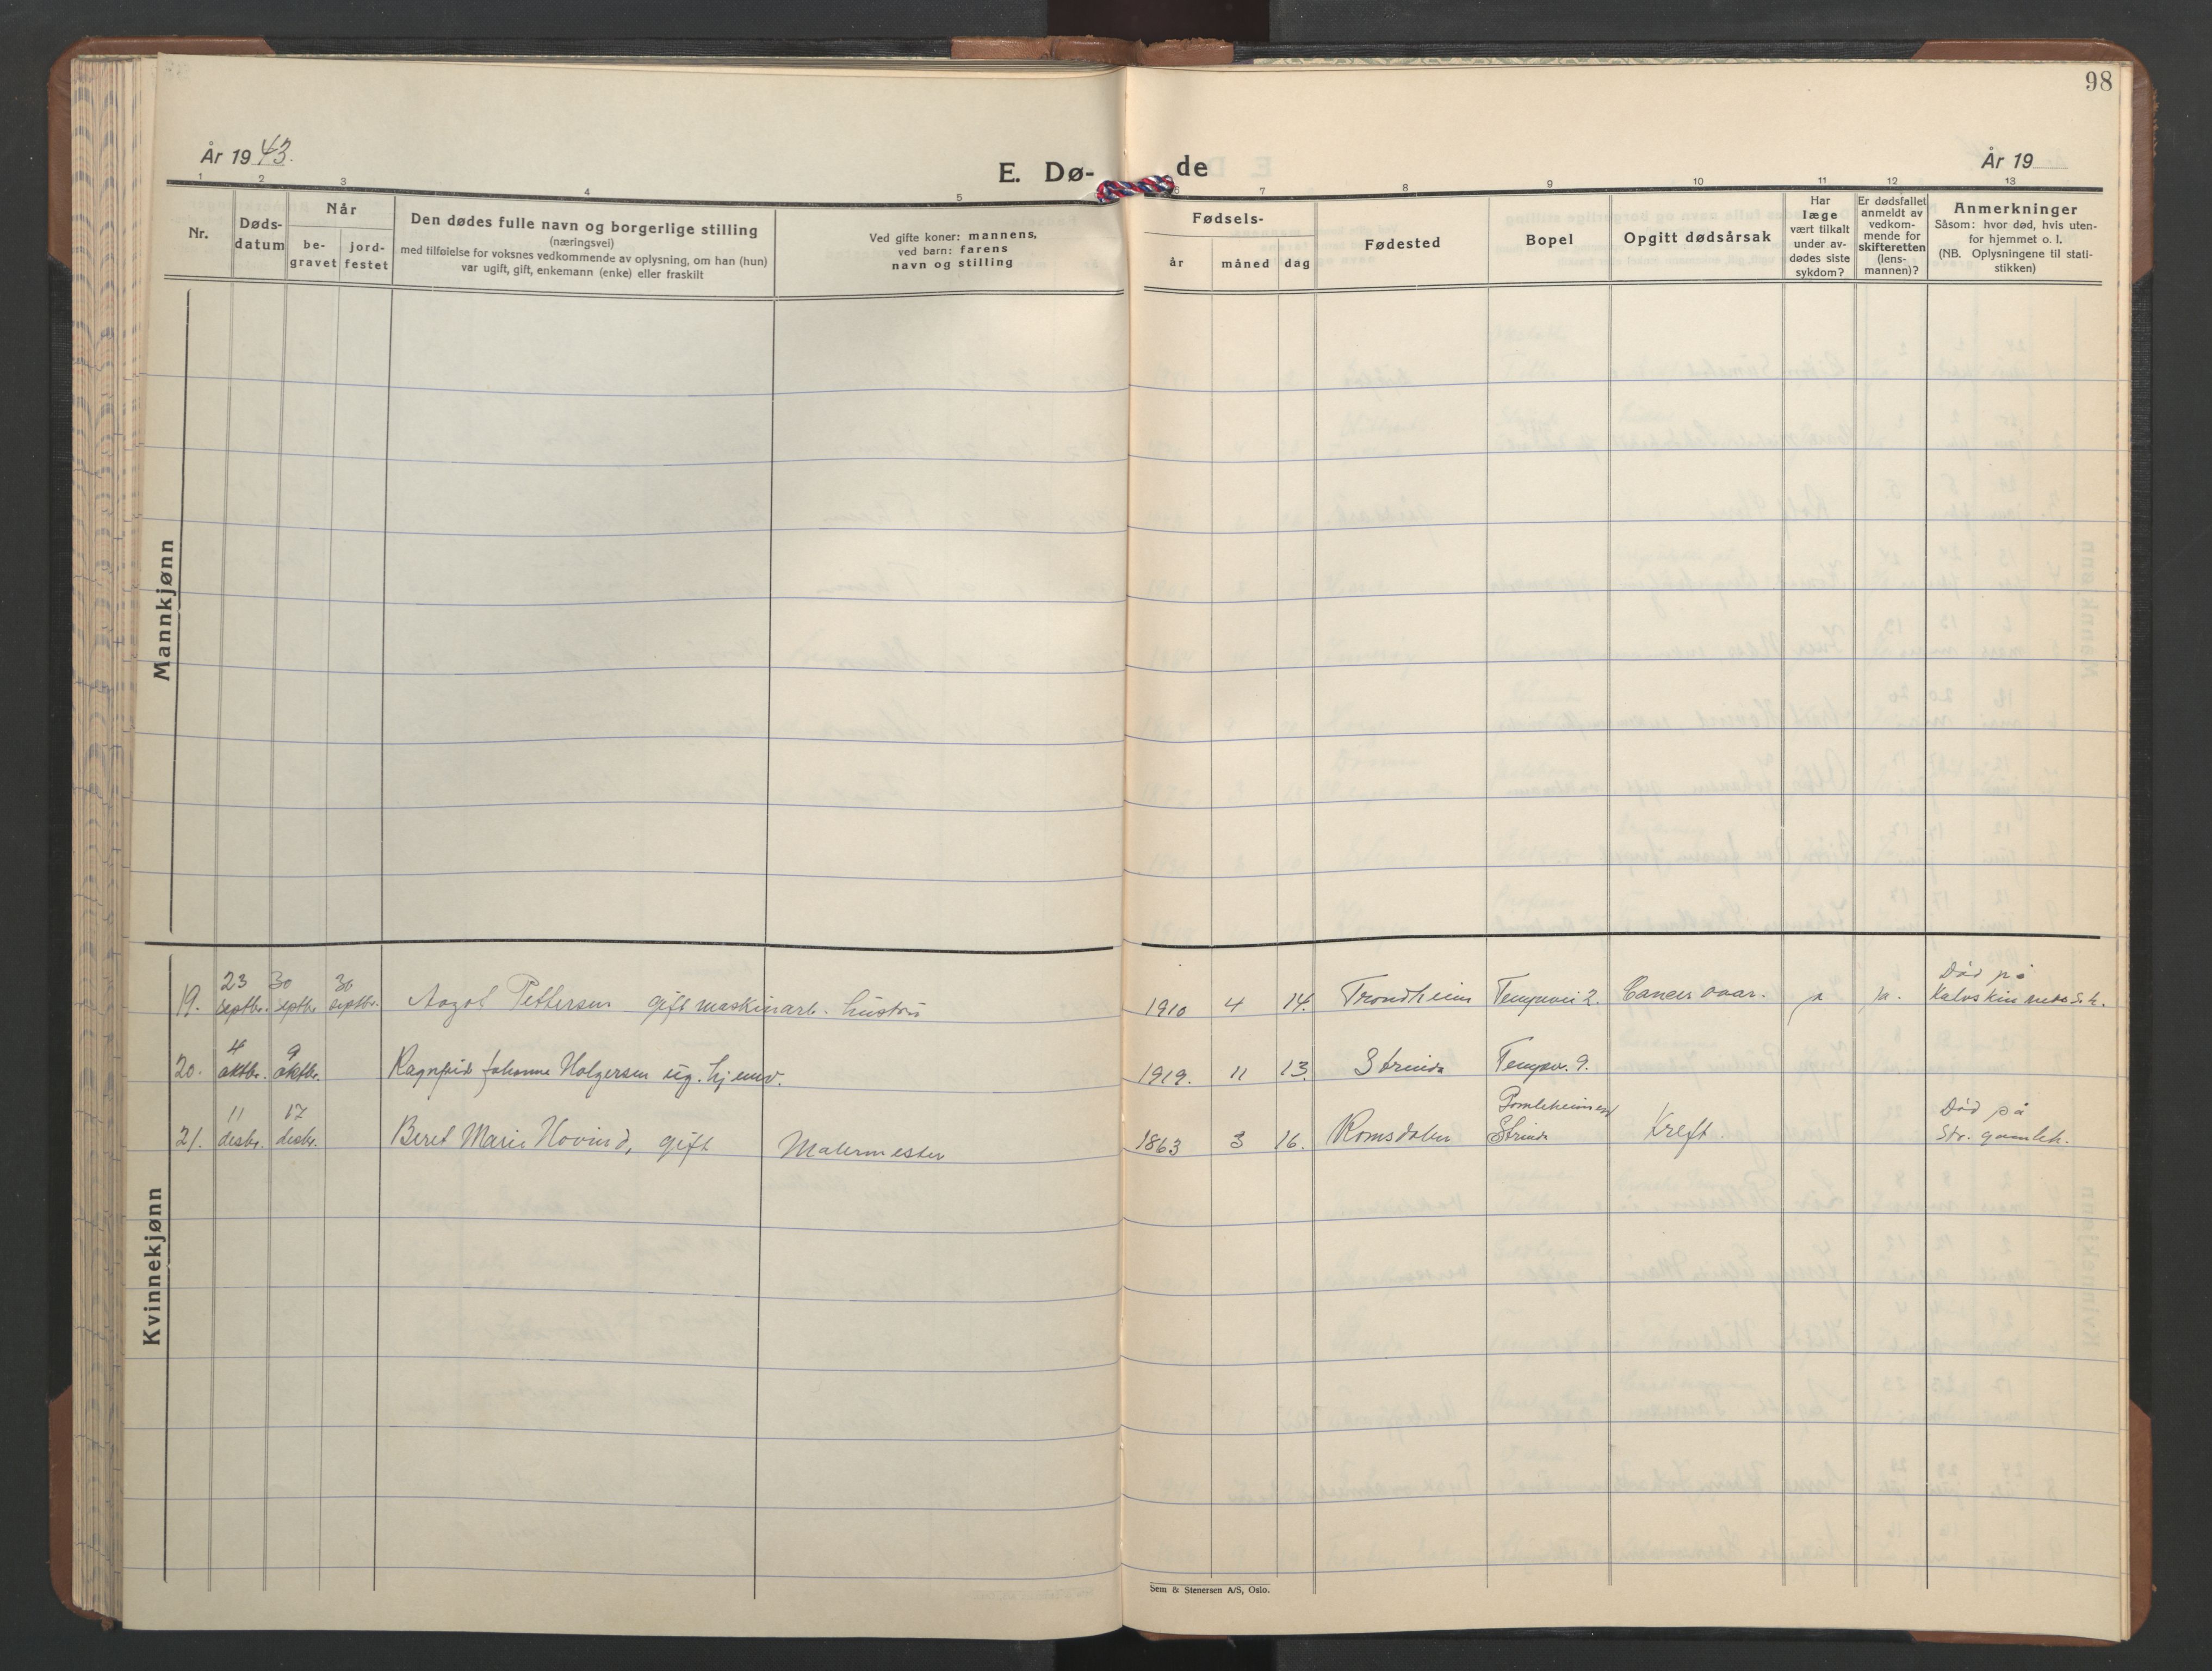 98
År 19 43.
E. Dø-
de
År 19
1 2 3 4 5 6 7 8 9 10 11 12 13
Nr.
Døds-
datum
Når
be-
gravet
jord-
festet
Den dødes fulle navn og borgerlige stilling
(næringsvei)
med tilføielse for voksnes vedkommende av oplysning, om han (hun)
var ugift, gift, enkemann (enke) eller fraskilt
Ved gifte koner: mannens,
ved barn: farens
navn og stilling
Fødsels-
år
måned
dag
Fødested
Bopel
Opgitt dødsårsak
Har
læge
vært tilkalt
under av-
dødes siste
sykdom?
Er dødsfallet
anmeldt av
vedkom-
mende for
skifteretten
(lens-
mannen)?
Anmerkninger
Såsom: hvor død, hvis uten-
for hjemmet o. l.
(NB. Oplysningene til stati-
stikken)
Mannkjønn
Kvinnekjønn
23 30 30 Død på
19. septbr. septbr. septbr. Aagot Pettersen gift maskinarb. hustru 1910 4 14. Trondheim Tempevei 2. Cancer ovar. ja ja.
4 9
20. oktbr. oktbr. Ragnfrid Johanne Holgersen ug. 1919. 11 13. Strinda Tempev. 9.
11 17 Død på
21. desbr. desbr. Beret Marie Hovind, gift Malermester 1863 3 16. Romsdalen Strinda Kreft. Str. gamleh.
Sem & Stenersen A/S, Oslo.